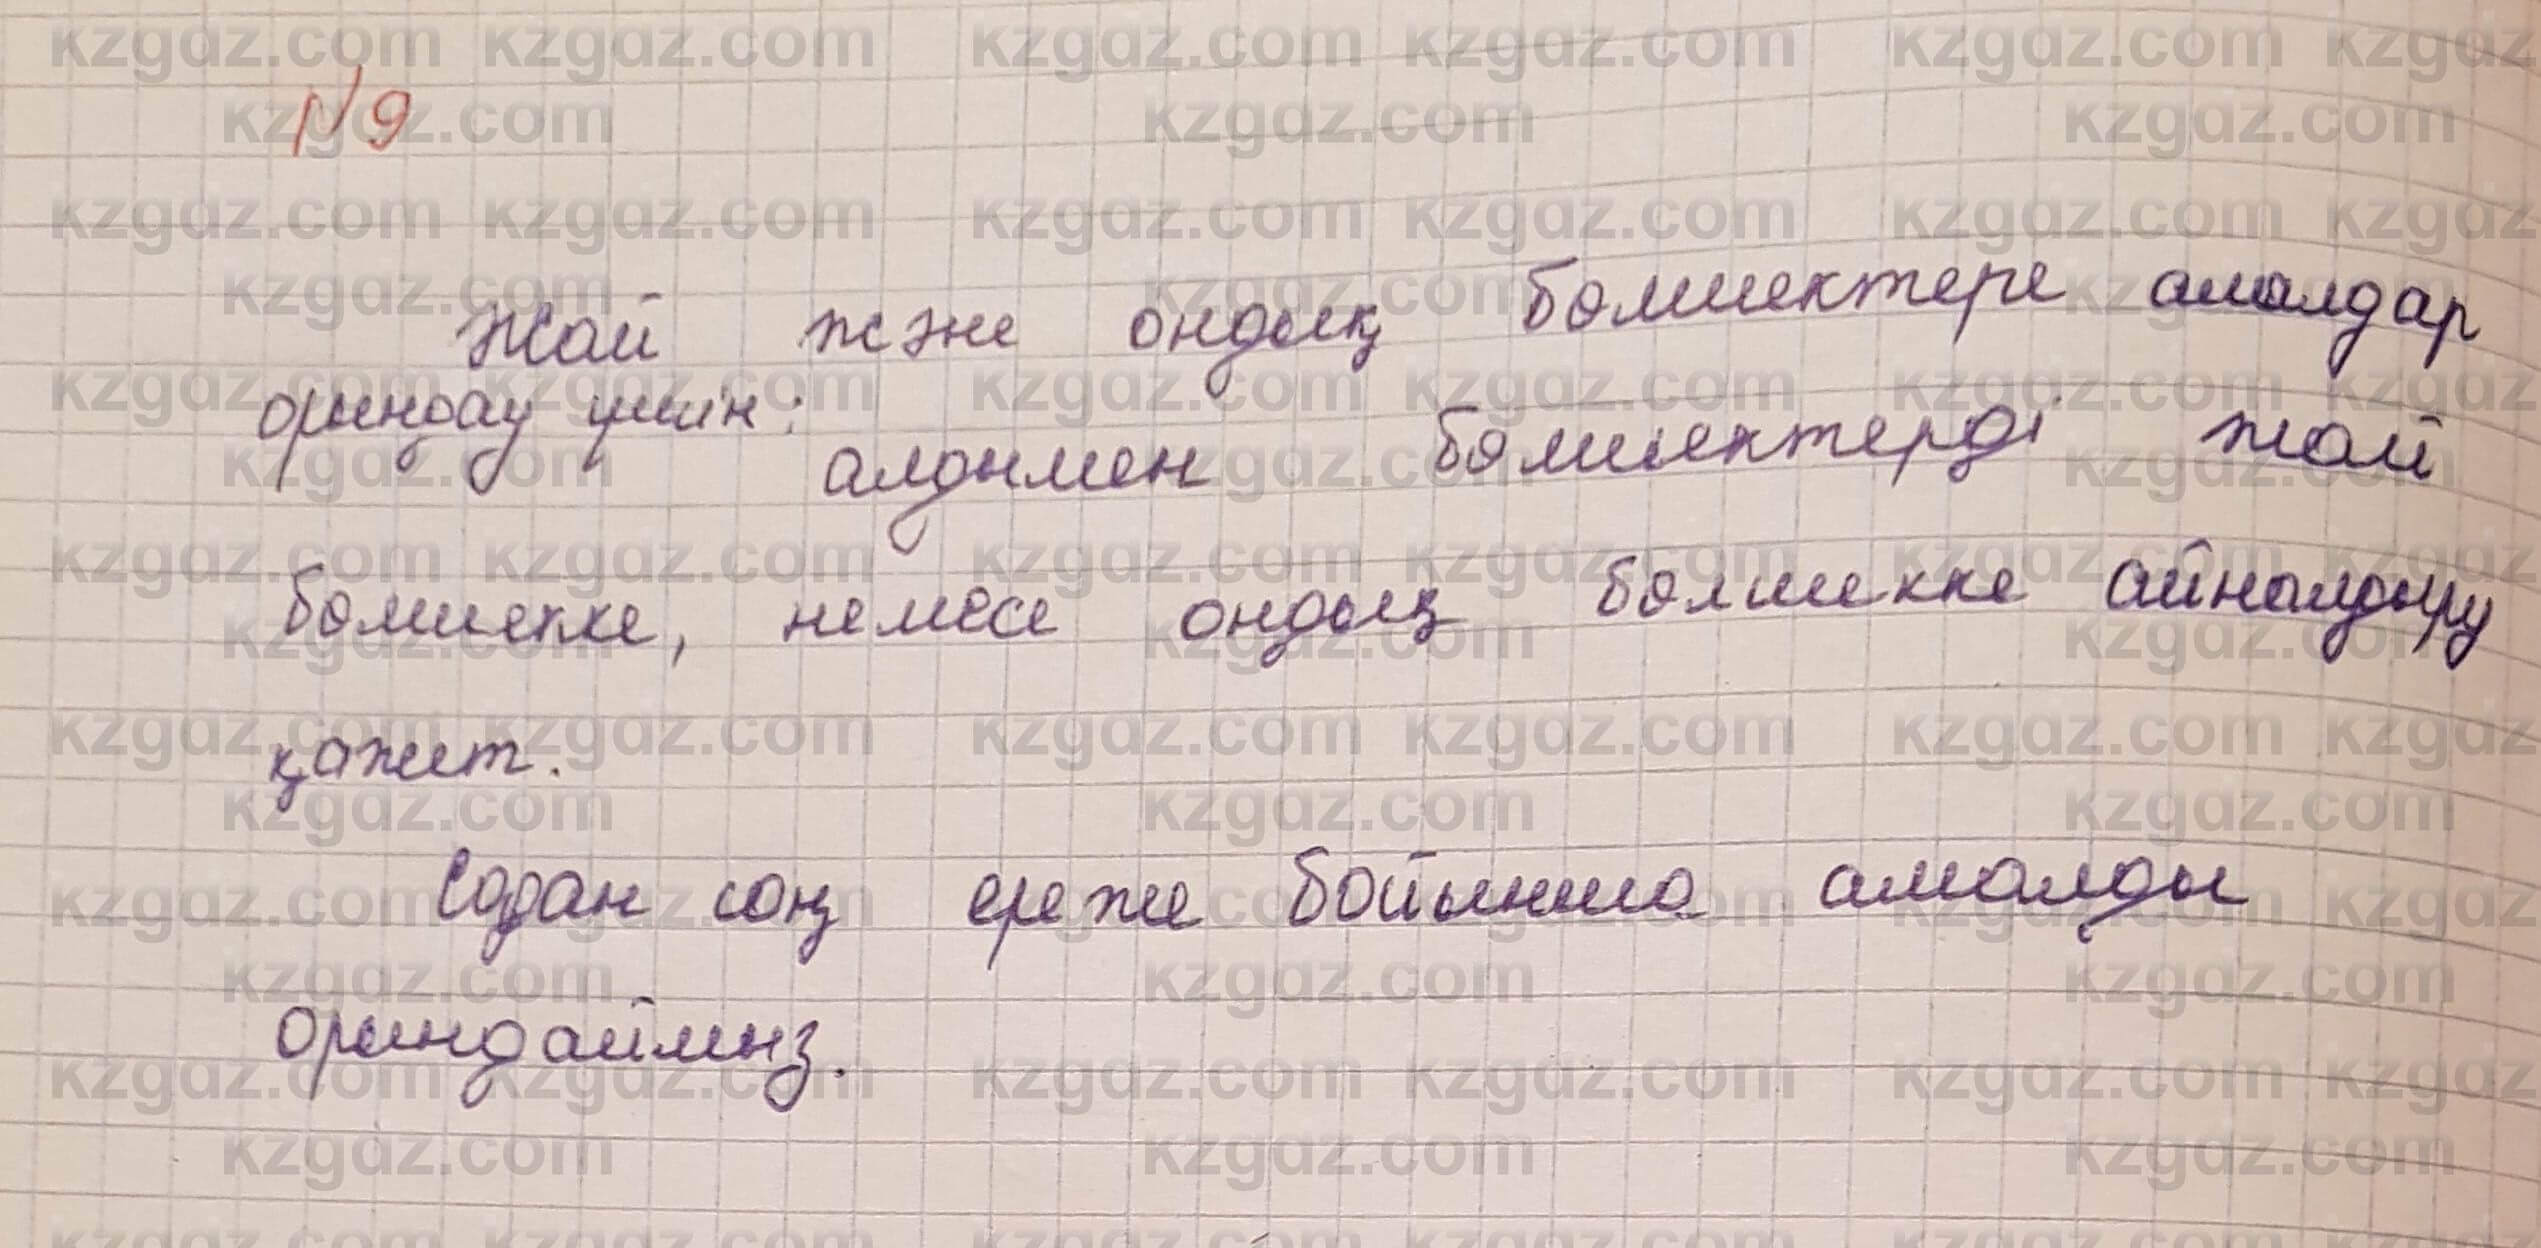 N9
Жай және ондық бөлшектерге амалдар
орындау үшін:
алдымен бөлшектерді жай
бөлшекке, немесе ондық бөлшекке айналдыру
қажет.
Содан соң ереже бойынша амалды
орындаймыз.